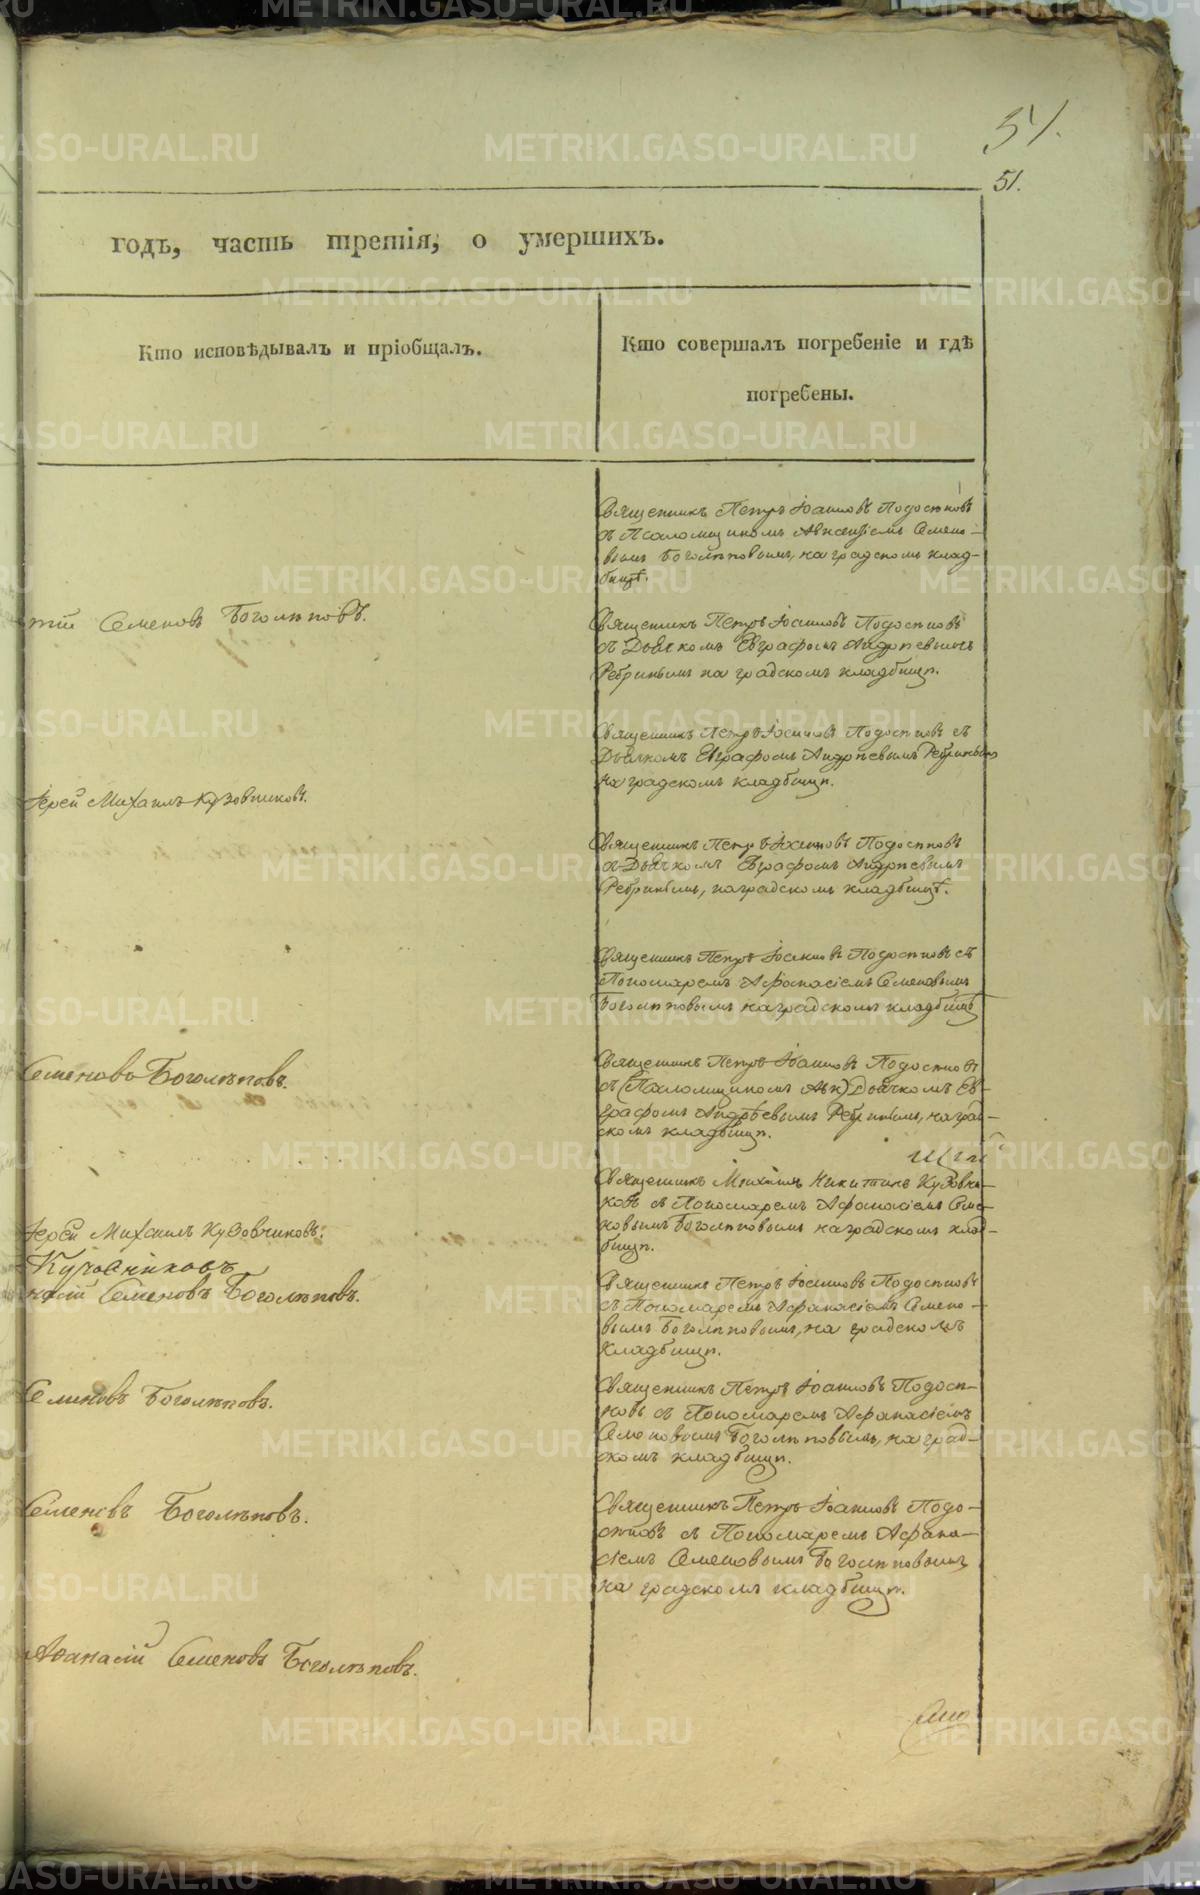 51.
51.
годъ, часть третія, о умершихъ.
Кто исповѣдывалъ и пріобщалъ.
Кто совершалъ погребеніе и гдѣ
погребены.
Священникъ Петръ Іоанновъ
съ Псаломщикомъ Авксентіемъ Семено-
вымъ Боголѣповымъ, на градскомъ клад-
бищѣ.
тій Семеновъ Боголѣповъ.
Священникъ Петръ Іоанновъ
съ Дьячкомъ Евграфомъ Андреевымъ
Ребринымъ на градскомъ кладбищѣ.
Священникъ Петръ Іоанновъ съ
Дьячкомъ Евграфомъ Андреевымъ Ребринымъ
на градскомъ кладбищѣ.
Іерей Михаилъ Кузовниковъ.
Священникъ Петръ Іоанновъ
съ Дьячкомъ Евграфомъ Андреевымъ
Ребринымъ, на градскомъ кладбищѣ.
Священникъ Петръ Іоанновъ съ
Пономаремъ Афанасіемъ Семеновымъ
Боголѣповымъ на градскомъ кладбищѣ
Семеновъ Боголѣповъ.
Священникъ Петръ Іоанновъ
съ (Псаломщикомъ Авк) Дьячкомъ Ев-
графомъ Андрѣевымъ Ребринымъ, на град-
скомъ кладбищѣ.
Священникъ Михаилъ Никитинъ Кузовни-
ковъ съ Пономаремъ Афанасіемъ Семе-
новымъ Боголѣповымъ на градскомъ клад-
бищѣ.
Іерей Михаилъ Кузовниковъ.
Кузовниковъ
насій Семеновъ Боголѣповъ.
Священникъ Петръ Іоанновъ
съ Пономаремъ Афанасіемъ Семено-
вымъ Боголѣповымъ, на градскомъ
кладбищѣ.
Священникъ Петръ Іоанновъ
съ Пономаремъ Афанасіемъ
Семеновымъ Боголѣповымъ, на град-
скомъ кладбищѣ.
Семеновъ Боголѣповъ.
Священникъ Петръ Іоанновъ
съ Пономаремъ Афана-
сіемъ Семеновымъ Боголѣповымъ
на градскомъ кладбищѣ.
Семеновъ Боголѣповъ.
Афанасій Семеновъ Боголѣповъ.
METRIKI.GASO-URAL.RU